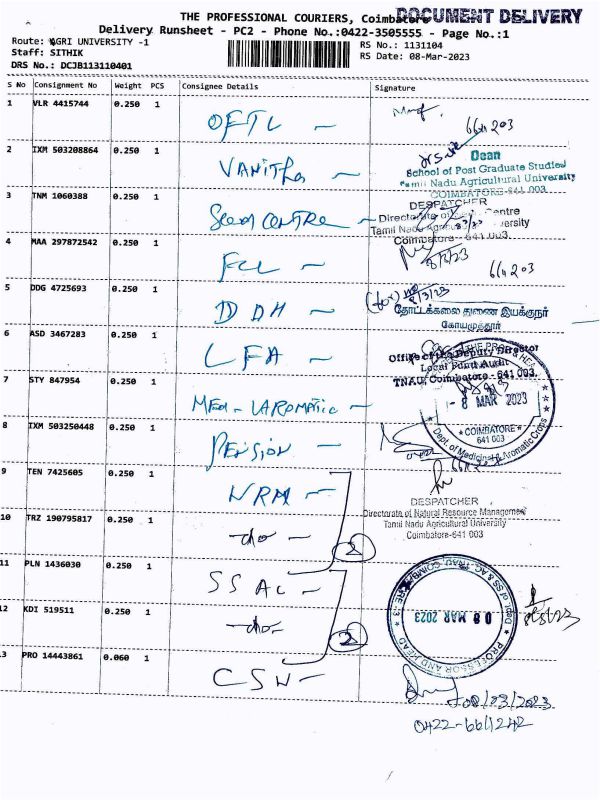 DOCUMENT DELIVERY
THE PROFESSIONAL COURIERS, Coimbatore
Delivery Runsheet - PC2 - Phone No.:0422-3505555 - Page No.:1
Route: AGRI UNIVERSITY -1
Staff: SITHIK
DRS No.: DCJB113110401
RS No.: 1131104
RS Date: 08-Mar-2023
S No Consignment No Weight PCS Consignee Details Signature
1 VLR 4415744 0.250 1 OFTL -
6611203
2 IXM 503208864 0.250 1 VANITHA -
Dean
School of Post Graduate Studies
Tamil Nadu Agricultural University
COIMBATORE-641 003
3 TNM 1060388 0.250 1 Seed CENTRE -
DESPATCHER
Directorate of Seed Centre
Tamil Nadu Agricultural University
Coimbatore - 641 003.
4 MAA 297872542 0.250 1 FCL -
8/3/23
6611203
5 DDG 4725693 0.250 1 DDH -
(for)
8/3/23
தோட்டக்கலை துணை இயக்குநர்
கோயமுத்தூர்
6 ASD 3467283 0.250 1 LFA -
Office of the Deputy Director
Local Fund Audit
TNAU, Coimbatore - 641 003.
7 STY 847954 0.250 1 MED - &AROMATIC -
- 8 MAR 2023
COIMBATORE
641 003
Dept. of Medicinal & Aromatic Crops
8 IXM 503250448 0.250 1 PENSION -
9 TEN 7425605 0.250 1 NRM -
DESPATCHER
Directorate of Natural Resource Management
Tamil Nadu Agricultural University
Coimbatore-641 003
10 TRZ 190795817 0.250 1 -do- 2
11 PLN 1436030 0.250 1 SSAC -
12 KDI 519511 0.250 1 -do- 2
PROFESSOR AND HEAD
Dept. of SS & AC, TNAU, COIMBATORE - 3
08 MAR 2023
13 PRO 14443861 0.060 1 CSW -
08/03/2023
0422-6611242